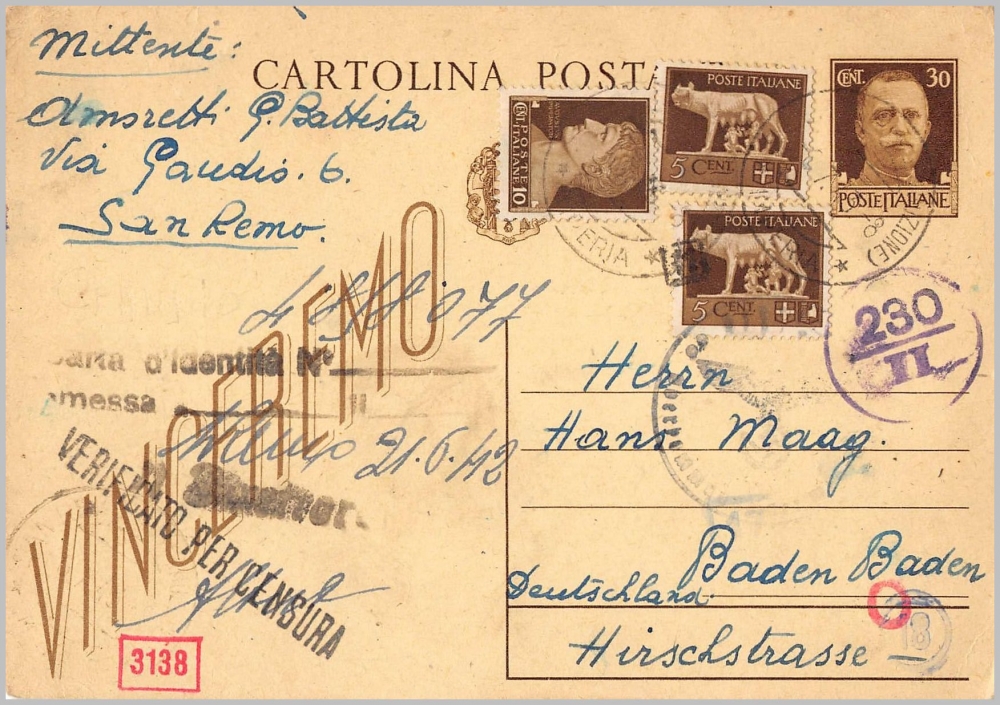 Mittente:
CARTOLINA POSTA
Amoretti G. Battista
Via Gaudio. 6.
San Remo.
POSTE ITALIANE
CENT. 10
POSTE ITALIANE
5 CENT.
POSTE ITALIANE
5 CENT.
CENT. 30
POSTE ITALIANE
PERIA
ZIONE)
230
II
077
arta d'Identità N°
messa
21.6.42
VERIFICATO PER CENSURA
VINCEREMO
3138
Herrn
Hans Maag.
Baden Baden
Deutschland.
Hirschstrasse
18